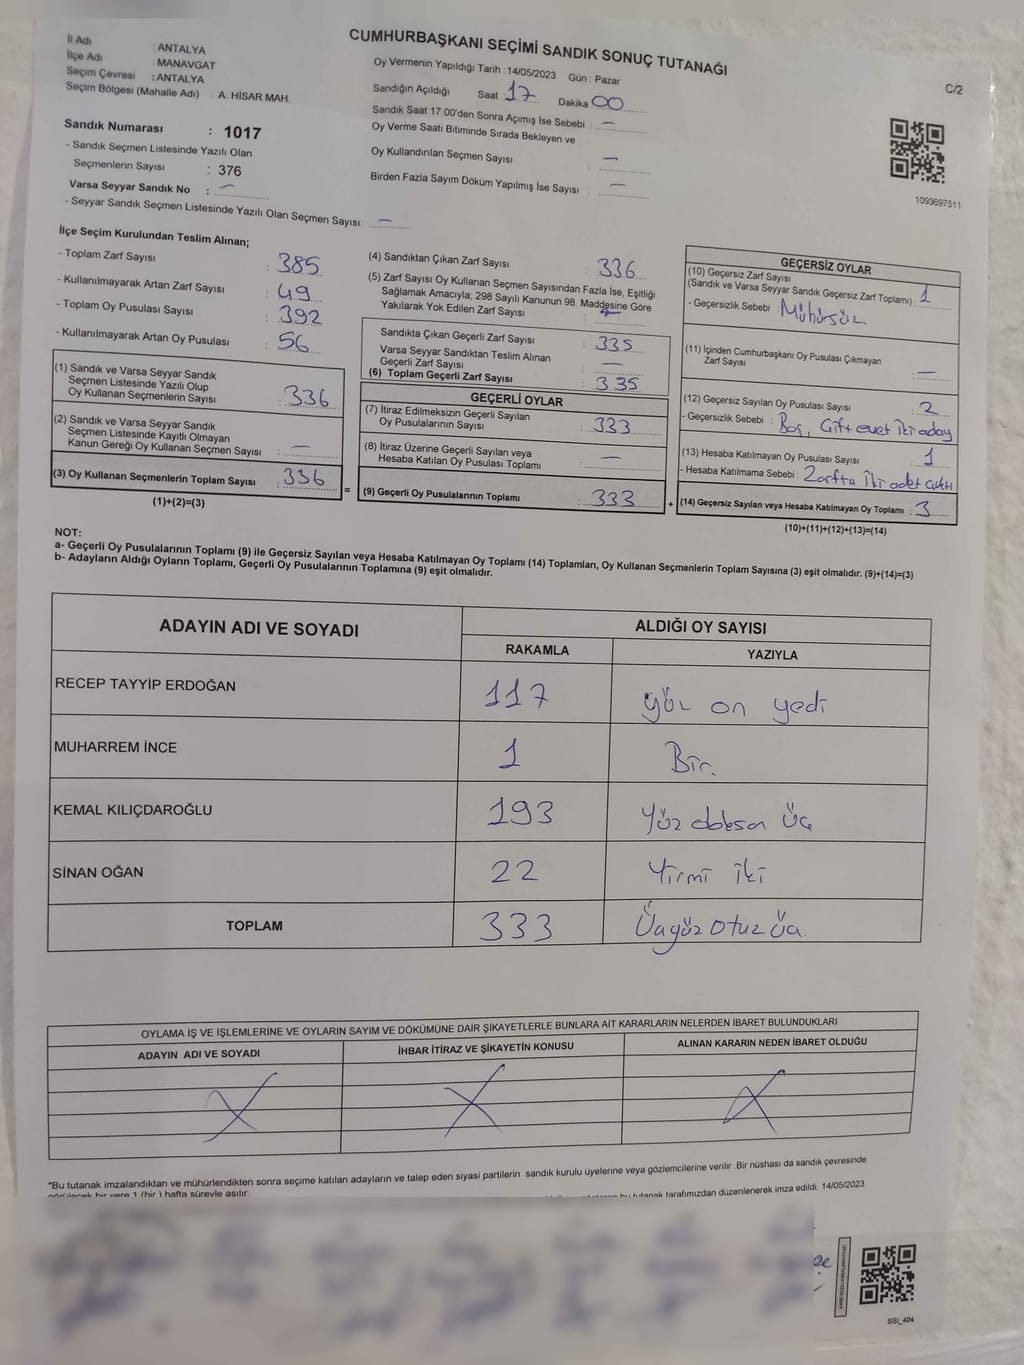 CUMHURBAŞKANI SEÇİMİ SANDIK SONUÇ TUTANAĞI
C/2
İl Adı : ANTALYA
İlçe Adı : MANAVGAT
Seçim Çevresi : ANTALYA
Seçim Bölgesi (Mahalle Adı) : A. HİSAR MAH.
Sandık Numarası : 1017
- Sandık Seçmen Listesinde Yazılı Olan
Seçmenlerin Sayısı : 376
Varsa Seyyar Sandık No : —
- Seyyar Sandık Seçmen Listesinde Yazılı Olan Seçmen Sayısı: —
Oy Vermenin Yapıldığı Tarih : 14/05/2023 Gün : Pazar
Sandığın Açıldığı Saat 17 Dakika 00
Sandık Saat 17:00'den Sonra Açımış İse Sebebi : —
Oy Verme Saati Bitiminde Sırada Bekleyen ve
Oy Kullandırılan Seçmen Sayısı : —
Birden Fazla Sayım Döküm Yapılmış İse Sayısı : —
1093697511
İlçe Seçim Kurulundan Teslim Alınan;
- Toplam Zarf Sayısı : 385
- Kullanılmayarak Artan Zarf Sayısı : 49
- Toplam Oy Pusulası Sayısı : 392
- Kullanılmayarak Artan Oy Pusulası : 56
(1) Sandık ve Varsa Seyyar Sandık
Seçmen Listesinde Yazılı Olup
Oy Kullanan Seçmenlerin Sayısı : 336
(2) Sandık ve Varsa Seyyar Sandık
Seçmen Listesinde Kayıtlı Olmayan
Kanun Gereği Oy Kullanan Seçmen Sayısı : —
(3) Oy Kullanan Seçmenlerin Toplam Sayısı : 336
(1)+(2)=(3)
=
(4) Sandıktan Çıkan Zarf Sayısı : 336
(5) Zarf Sayısı Oy Kullanan Seçmen Sayısından Fazla İse, Eşitliği
Sağlamak Amacıyla; 298 Sayılı Kanunun 98. Maddesine Göre
Yakılarak Yok Edilen Zarf Sayısı :
Sandıkta Çıkan Geçerli Zarf Sayısı : 335
Varsa Seyyar Sandıktan Teslim Alınan
Geçerli Zarf Sayısı : —
(6) Toplam Geçerli Zarf Sayısı : 335
GEÇERLİ OYLAR
(7) İtiraz Edilmeksizin Geçerli Sayılan
Oy Pusulalarının Sayısı : 333
(8) İtiraz Üzerine Geçerli Sayılan veya
Hesaba Katılan Oy Pusulası Toplamı : —
(9) Geçerli Oy Pusulalarının Toplamı : 333
+
GEÇERSİZ OYLAR
(10) Geçersiz Zarf Sayısı
(Sandık ve Varsa Seyyar Sandık Geçersiz Zarf Toplamı) : 1
- Geçersizlik Sebebi : Mühürsüz
(11) İçinden Cumhurbaşkanı Oy Pusulası Çıkmayan
Zarf Sayısı : —
(12) Geçersiz Sayılan Oy Pusulası Sayısı : 2
- Geçersizlik Sebebi : Boş, Çift evet iki aday
(13) Hesaba Katılmayan Oy Pusulası Sayısı : 1
- Hesaba Katılmama Sebebi : Zarfta iki adet çıktı
(14) Geçersiz Sayılan veya Hesaba Katılmayan Oy Toplamı : 3
(10)+(11)+(12)+(13)=(14)
NOT:
a- Geçerli Oy Pusulalarının Toplamı (9) ile Geçersiz Sayılan veya Hesaba Katılmayan Oy Toplamı (14) Toplamları, Oy Kullanan Seçmenlerin Toplam Sayısına (3) eşit olmalıdır. (9)+(14)=(3)
b- Adayların Aldığı Oyların Toplamı, Geçerli Oy Pusulalarının Toplamına (9) eşit olmalıdır.
ADAYIN ADI VE SOYADI
ALDIĞI OY SAYISI
RAKAMLA YAZIYLA
RECEP TAYYİP ERDOĞAN 117 yüz on yedi
MUHARREM İNCE 1 Bir.
KEMAL KILIÇDAROĞLU 193 Yüz doksan üç
SİNAN OĞAN 22 Yirmi iki
TOPLAM 333 Üçyüz otuz üç.
OYLAMA İŞ VE İŞLEMLERİNE VE OYLARIN SAYIM VE DÖKÜMÜNE DAİR ŞİKAYETLERLE BUNLARA AİT KARARLARIN NELERDEN İBARET BULUNDUKLARI
ADAYIN ADI VE SOYADI İHBAR İTİRAZ VE ŞİKAYETİN KONUSU ALINAN KARARIN NEDEN İBARET OLDUĞU
*Bu tutanak imzalandıktan ve mühürlendikten sonra seçime katılan adayların ve talep eden siyasi partilerin sandık kurulu üyelerine veya gözlemcilerine verilir .Bir nüshası da sandık çevresinde
görülecek bir yere 1 (bir ) hafta süreyle asılır.
bu tutanak tarafımızdan düzenlenerek imza edildi. 14/05/2023
SSI_404